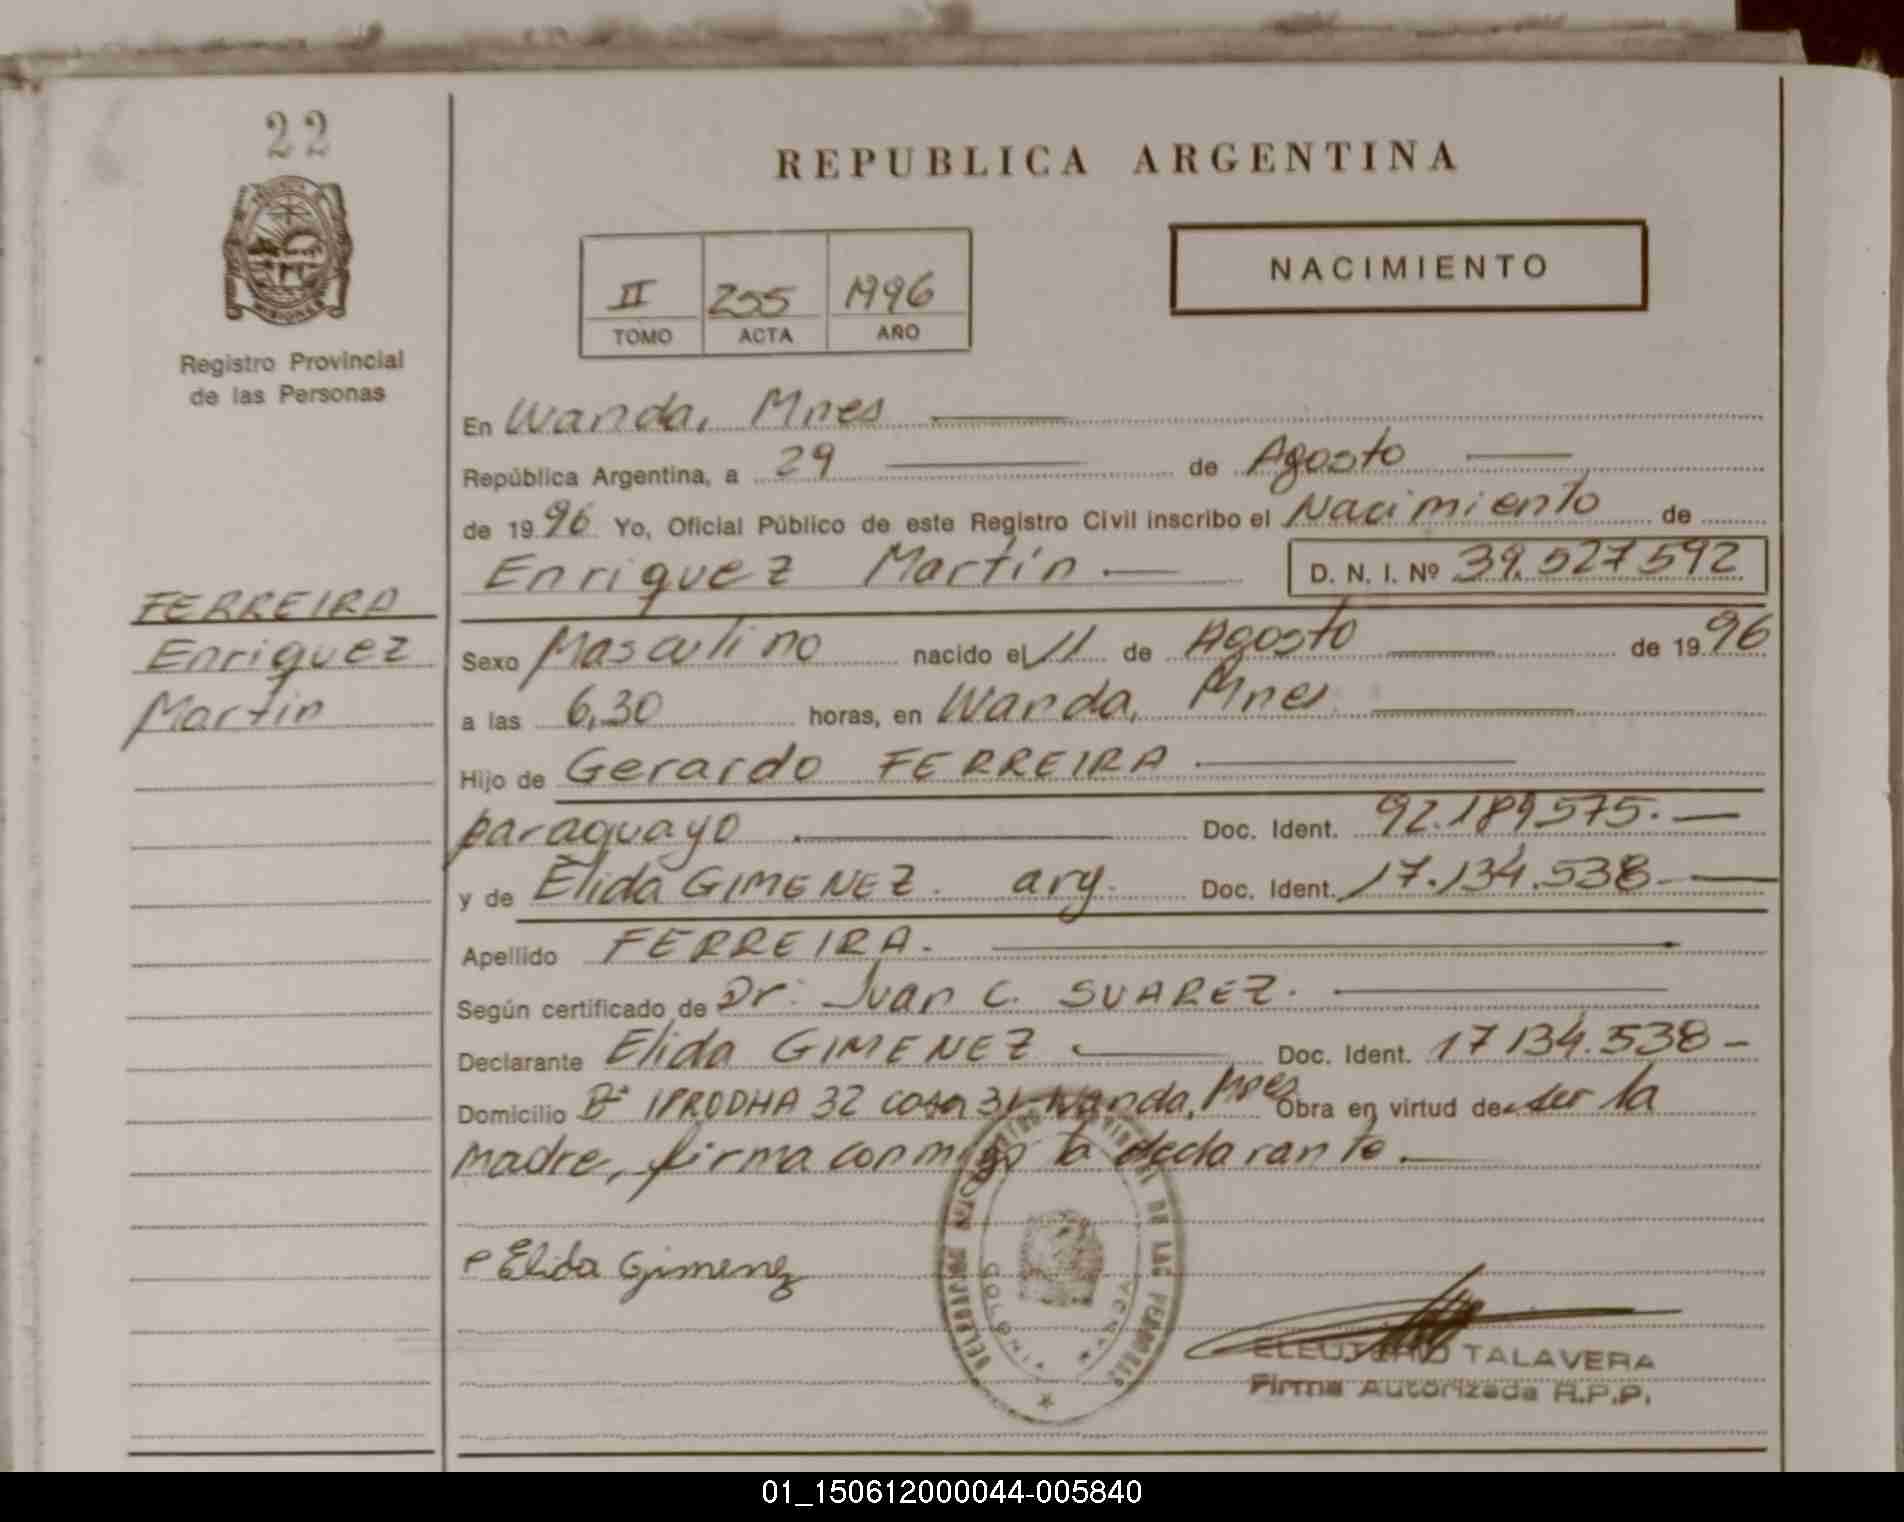 22
REPUBLICA ARGENTINA
MISIONES
II 255 1996
TOMO ACTA AÑO
NACIMIENTO
Registro Provincial
de las Personas
En Wanda, Mnes
República Argentina, a 29 de Agosto
de 1996 Yo, Oficial Público de este Registro Civil inscribo el Nacimiento de
Enriquez Martín D. N. I. Nº 39.527.592
FERREIRA
Enriquez
Martín
Sexo Masculino nacido el 11 de Agosto de 1996
a las 6,30 horas, en Wanda, Mnes
Hijo de Gerardo FERREIRA
paraguayo Doc. Ident. 92.189.575.
y de Elida GIMENEZ. arg. Doc. Ident. 17.134.538
Apellido FERREIRA.
Según certificado de Dr. Juan C. SUAREZ.
Declarante Elida GIMENEZ Doc. Ident. 17 134.538
Domicilio Bº IPRODHA 32 casa 31 Wanda, Mnes Obra en virtud de ser la
madre, firma conmigo la declarante.
Elida Gimenez
DE LAS PERSONAS
COLONIA WANDA
ELEUTERIO TALAVERA
Firma Autorizada R.P.P.
01_150612000044-005840